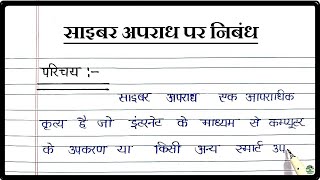 साइबर अपराध पर निबंध
परिचय :-
साइबर अपराध एक आपराधिक
कृत्य है जो इंटरनेट के माध्यम से कम्प्यूटर
के उपकरण या किसी अन्य स्मार्ट उप